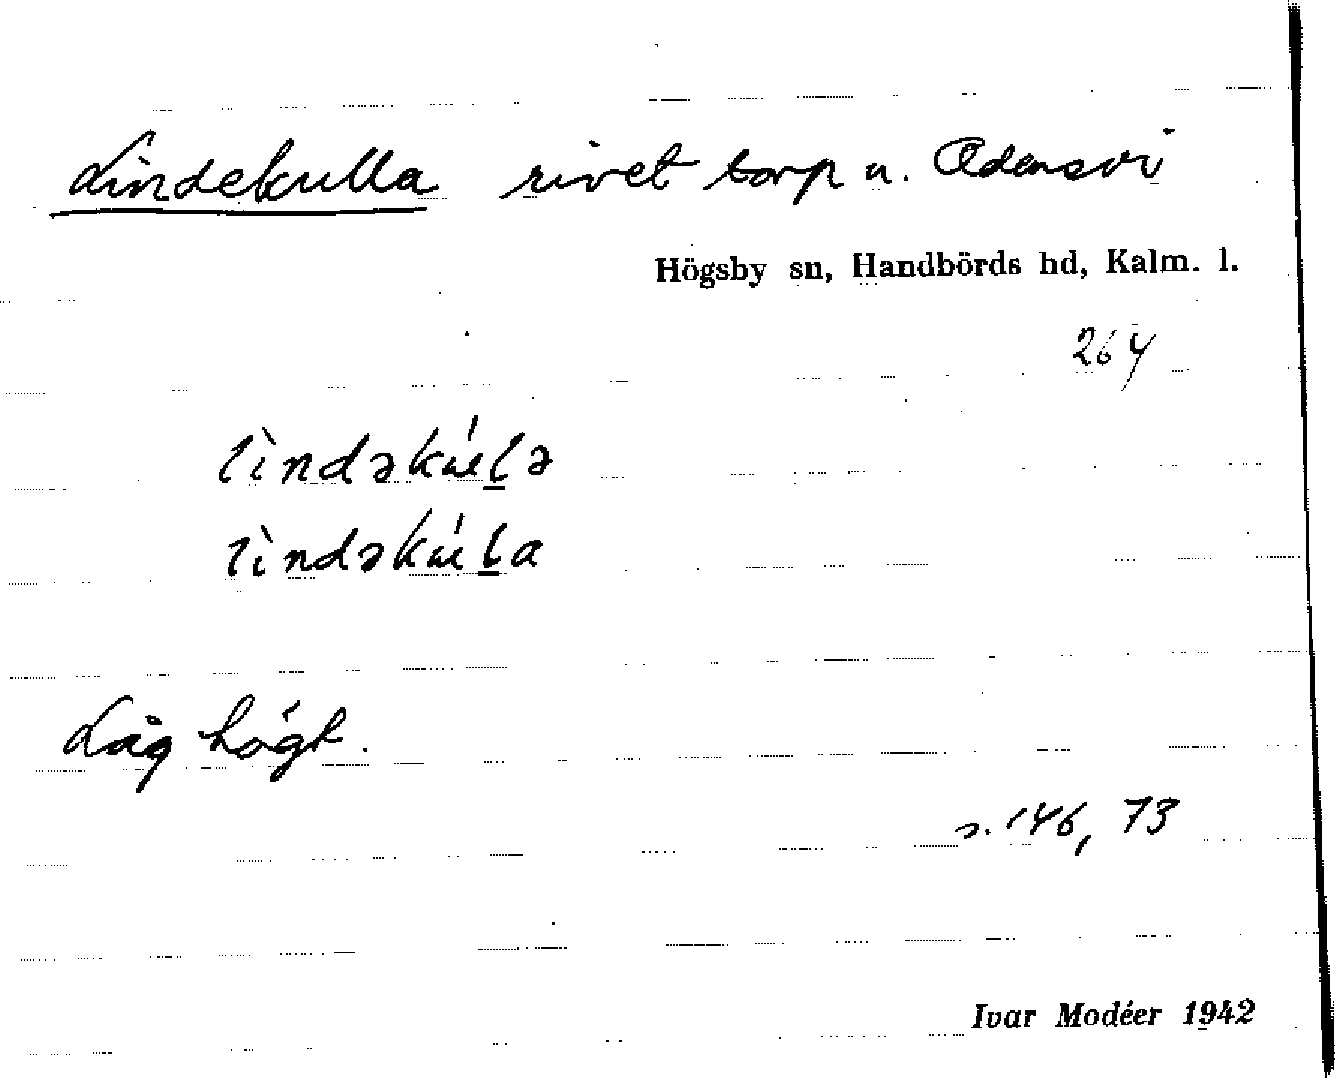 Lindekulla rivet torp u. Odensvi
Högsby sn, Handbörds hd, Kalm. l.
264
lìndəkúl̲ə
lìndəkúl̲a
Låg högt.
s. 146, 73
Ivar Modéer 1942